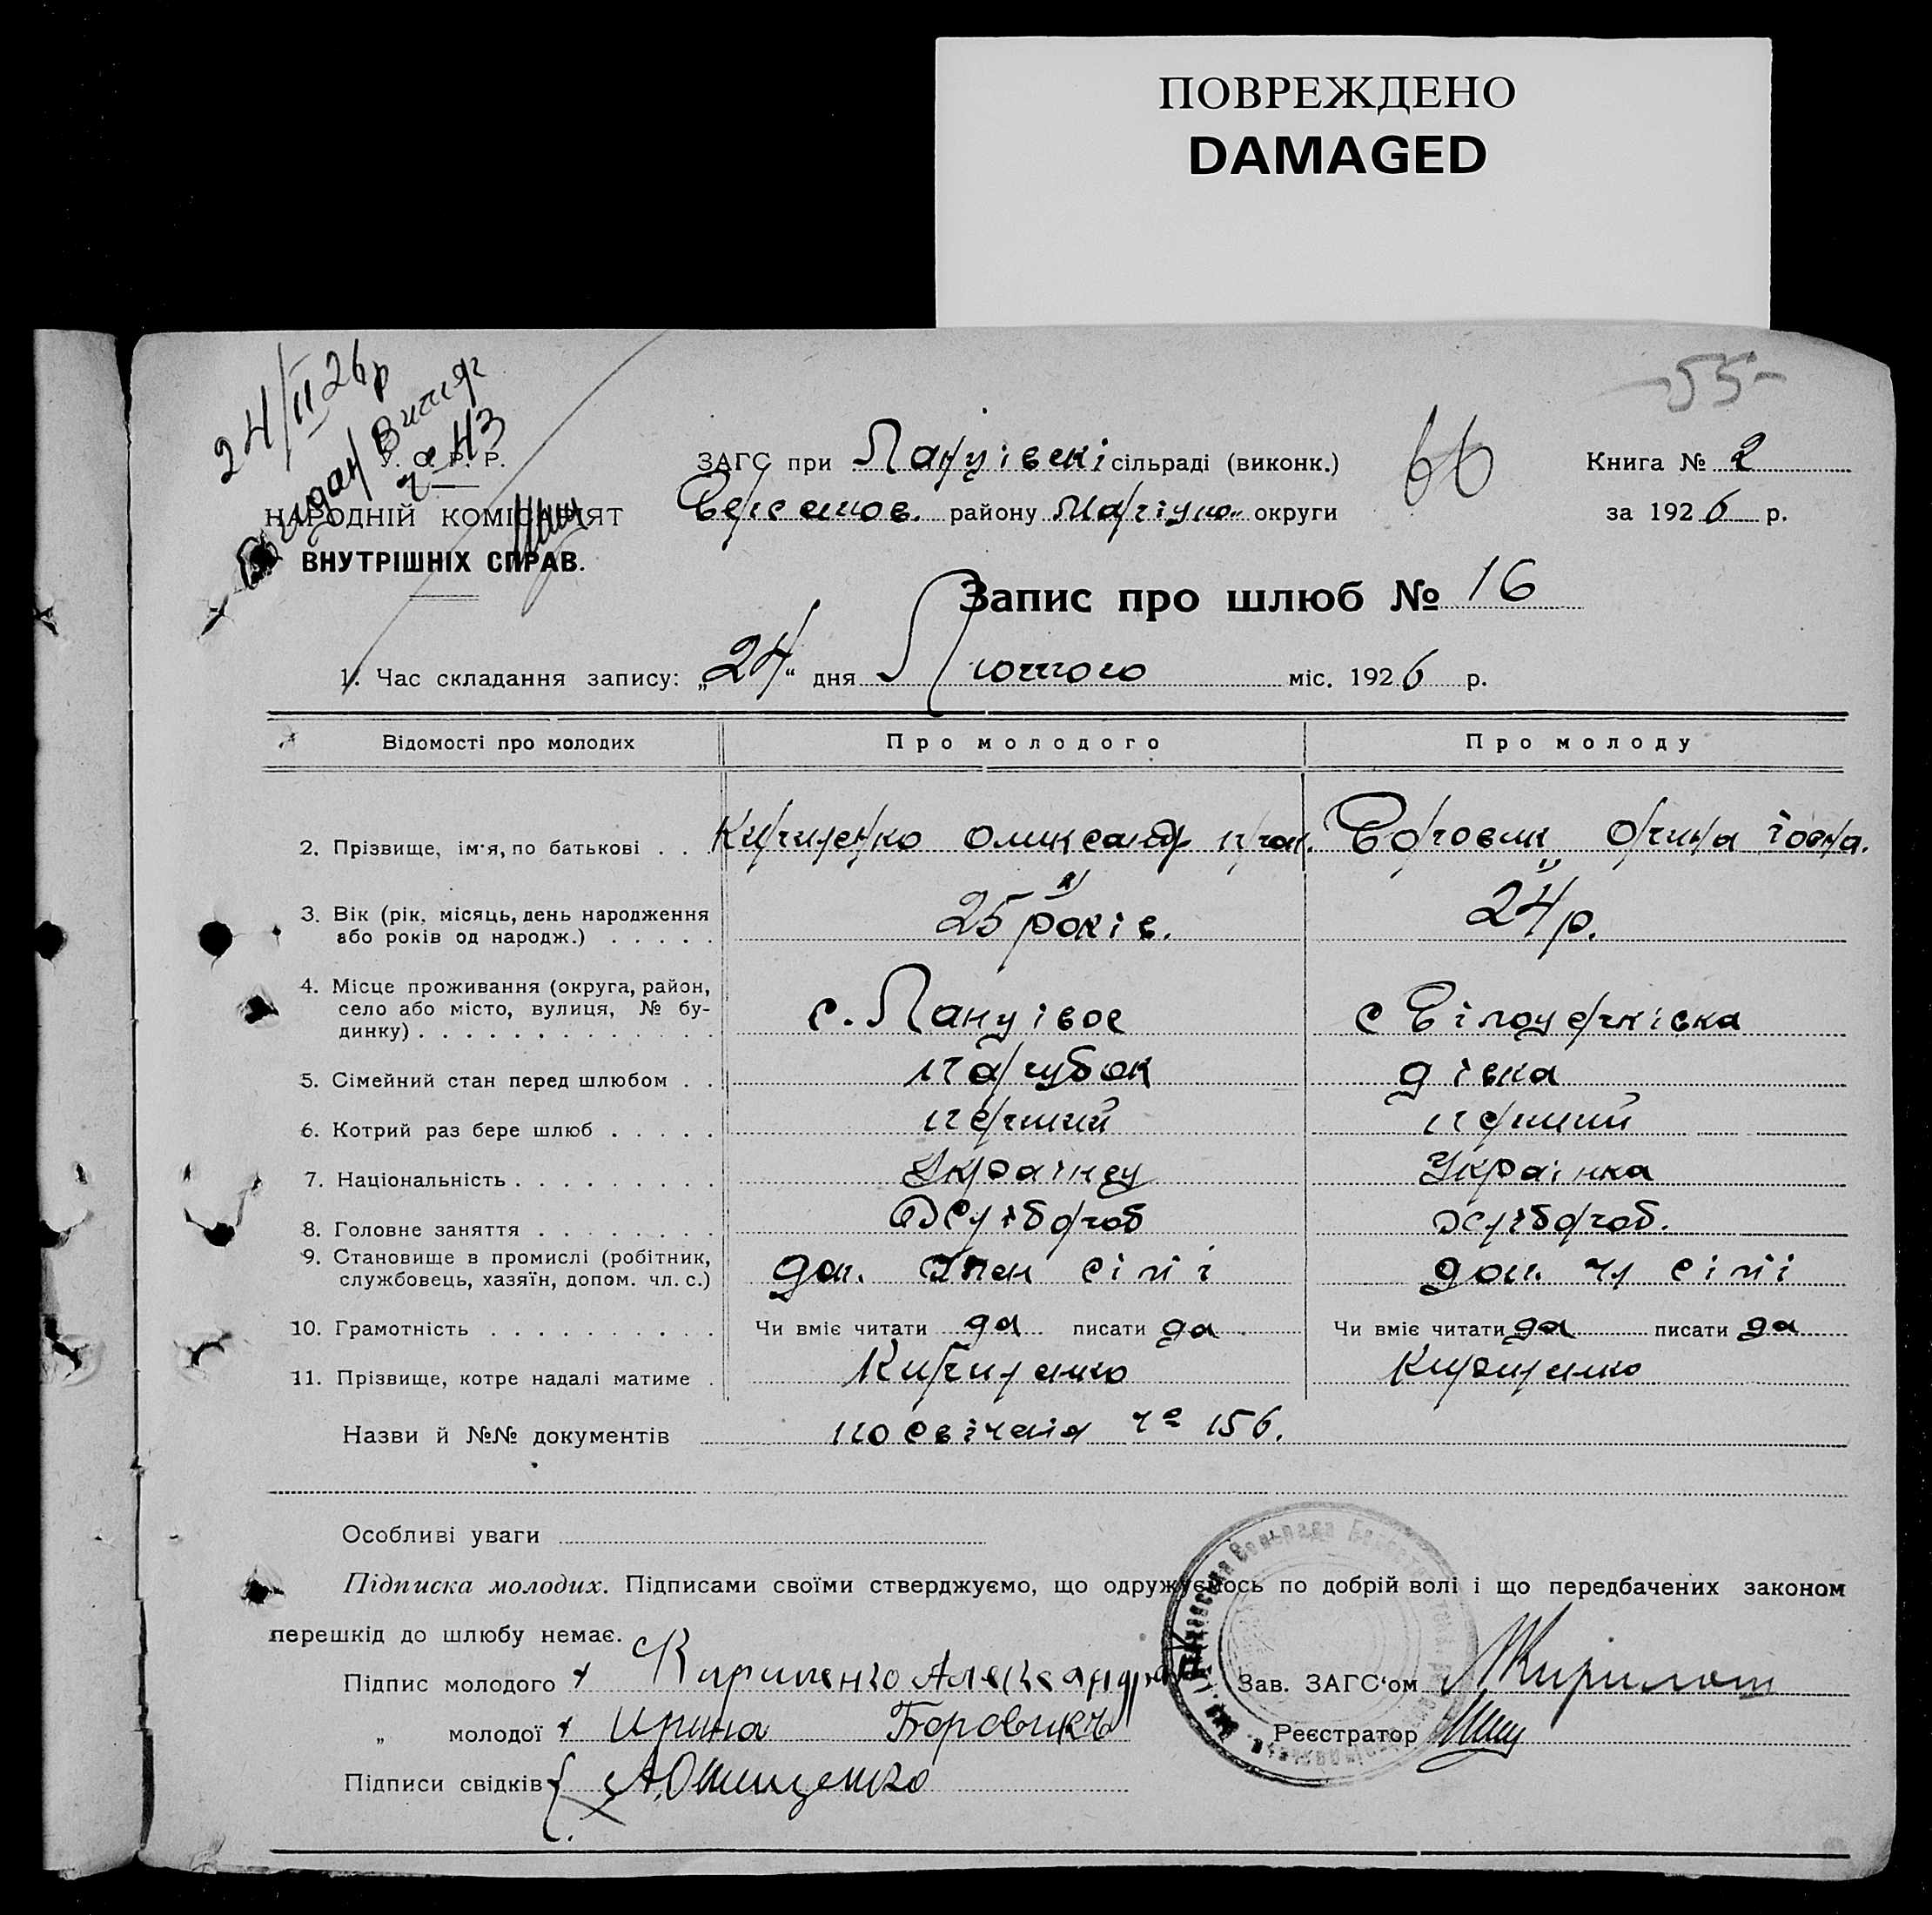 ПОВРЕЖДЕНО
DAMAGED
24/II 26р
Видан Витяг
№ 43
-55-
66
У. С. Р. Р.
НАРОДНІЙ КОМІСАРІЯТ
ВНУТРІШНІХ СПРАВ.
ЗАГС при Ланцівскі сільраді (виконк.)
Берестов. району Маріуп. округи
Книга № 2
за 1926 р.
Запис про шлюб № 16
1. Час складання запису: „24“ дня Лютого міс. 1926 р.
Відомості про молодих Про молодого Про молоду
2. Прізвище, ім'я, по батькові . . Кириленко Олександр Боровик Орина
3. Вік (рік, місяць, день народження
або років од народж.) . . . . . 25 років. 24 р.
4. Місце проживання (округа, район,
село або місто, вулиця, № бу-
динку) . . . . . . . . . . . . . с. Ланцівое с Білоцерківка
5. Сімейний стан перед шлюбом . . парубок дівка
6. Котрий раз бере шлюб . . . . . перший перший
7. Національність . . . . . . . . . Українец Українка
8. Головне заняття . . . . . . . . Хлібороб хлібороб.
9. Становище в промислі (робітник,
службовець, хазяїн, допом. чл. с.) доп. член сім'і доп. чл сім'і
10. Грамотність . . . . . . . . . . Чи вміє читати да писати да Чи вміє читати да писати да
11. Прізвище, котре надалі матиме . Кириленко Кириленко
Назви й №№ документів посвічаня № 156.
Особливі уваги
Підписка молодих. Підписами своїми стверджуємо, що одружуємось по добрій волі і що передбачених законом
перешкід до шлюбу немає.
Підпис молодого Кириленко Александр Зав. ЗАГС'ом
„ молодої Ирина Боровикъ Реєстратор
Підписи свідків А. Онищенко